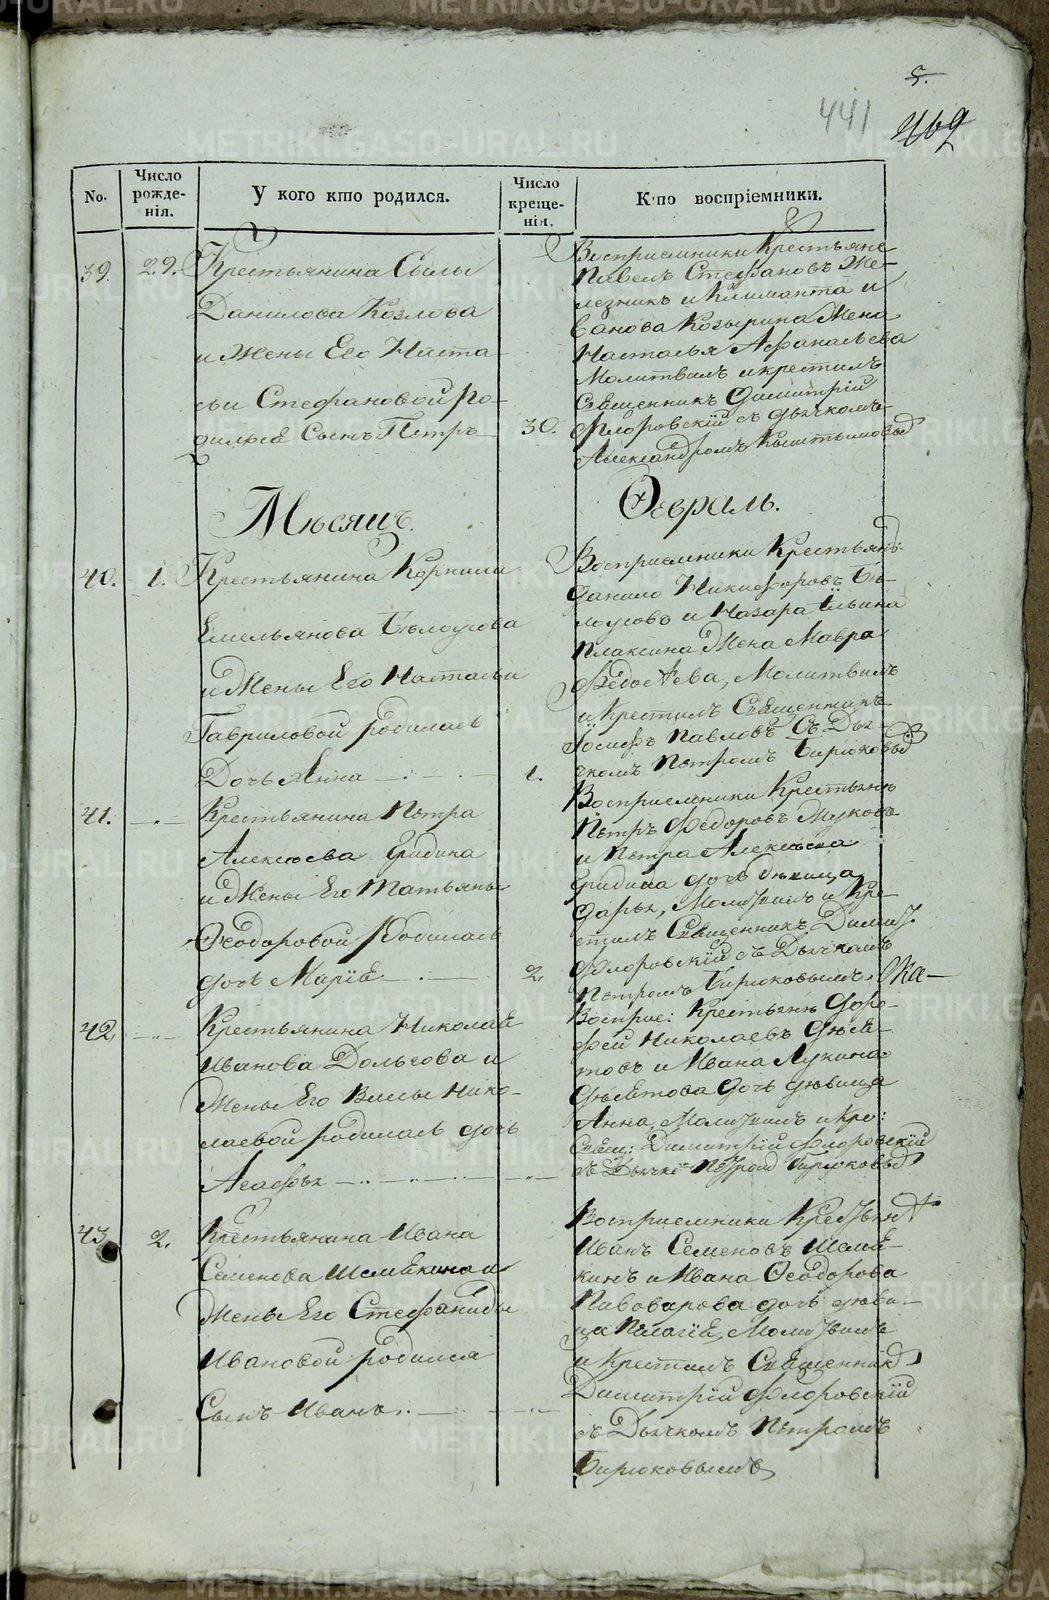 441
No.
Число рожде-
нія.
У кого кто родился.
Число креще-
нія.
Кто воспріемники.
39. 29. Крестьянина Савы
Данилова Козлова
и Жены Его Наста-
сьи Стефановой ро-
дился Сынъ Петръ
30.
Восприемники Крестьяне
Павелъ Стефановъ Же-
лезникъ и Климанта и
ванова Козырина Жена
Настасья Афанасьева
Молитвилъ и крестилъ
Священникъ Димитрій
Флоровскій съ дьячкомъ
Александромъ Кыштымовыд
Мѣсяцъ. Февраль.
40. 1. Крестьянина Корнила
Емельянова Бѣлоусова
и Жены Его Настасьи
Гавриловой родилась
Дочь Анна
1.
Восприемники Крестьянъ
Данило Никифоровъ Бѣ-
лоусовъ и Назара Ильина
Плаксина Жена Мавра
Федосѣева, Молитвилъ
и Крестилъ Священникъ
Іосифъ Павловъ Съ Дья-
чкомъ Петромъ Бирюковыд
41. Крестьянина Петра
Алексѣева Гридина
и Жены Его Татьяны
Феодоровой родилась
дочь Марія
2.
Восприемники Крестьяне
Петръ Федоровъ Жуковъ
и Петра Алексѣева
Гридина дочь дѣвица
Дарья, Молитвилъ и Кре-
стилъ Священникъ Димит
Флоровскій съ Дьячкомъ
Петромъ Бирюковымъ.
42 Крестьянина Николая
Иванова Долгова и
Жены Его Вассы Нико-
лаевой родилась дочь
Агафья
Восприе: Крестьяне Доро-
фей Николаевъ Дѣсѧ-
товъ и Ивана Лукина
дочь дѣвица
Анна, Молитвилъ и Кре:
Свящ: Димитрій Флоровскій
съ Дьячко Петромъ Бирюковыд
43 2. Крестьянина Ивана
Семенова Шемякина и
Жены Его Стефаниды
Ивановой родился
Сынъ Иванъ.
Восприемники Крестьян
Иванъ Семеновъ Шемя-
кинъ и Ивана Феодорова
Пивоварова дочь дѣви-
ца Пелагія, Молитвилъ
и Крестилъ Священник
Димитрій Флоровскій
съ Дьячкомъ Петромъ
Бирюковымъ
METRIKI.GASO-URAL.RU